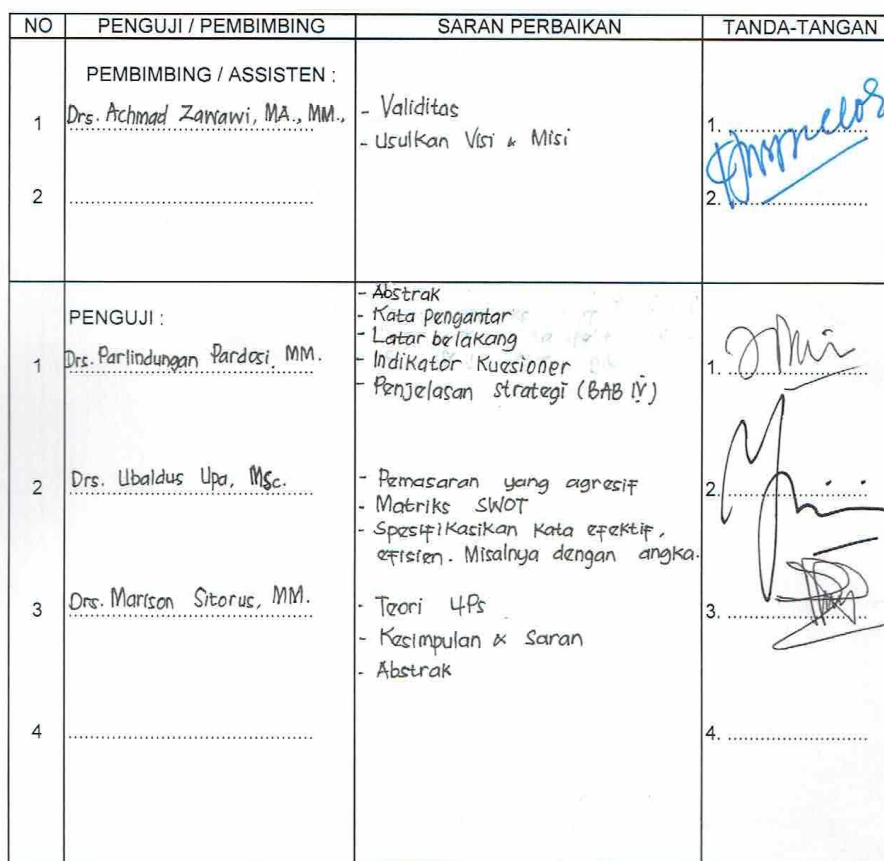 NO PENGUJI / PEMBIMBING SARAN PERBAIKAN TANDA-TANGAN
PEMBIMBING / ASSISTEN :
1 Drs. Achmad Zawawi, MA., MM., - Validitas 1. ....................
- Usulkan Visi & Misi
2 .................... 2. ....................
- Abstrak
PENGUJI : - Kata Pengantar
- Latar belakang
1 Drs. Parlindungan Pardosi, MM. - Indikator Kuesioner 1. ....................
- Penjelasan strategi (BAB IV)
2 Drs. Ubaldus Upa, MSc. - Pemasaran yang agresif 2. ....................
- Matriks SWOT
- Spesifikasikan kata efektif,
efisien. Misalnya dengan angka.
3 Drs. Marison Sitorus, MM. - Teori 4Ps 3. ....................
- Kesimpulan & Saran
- Abstrak
4 .................... 4. ....................